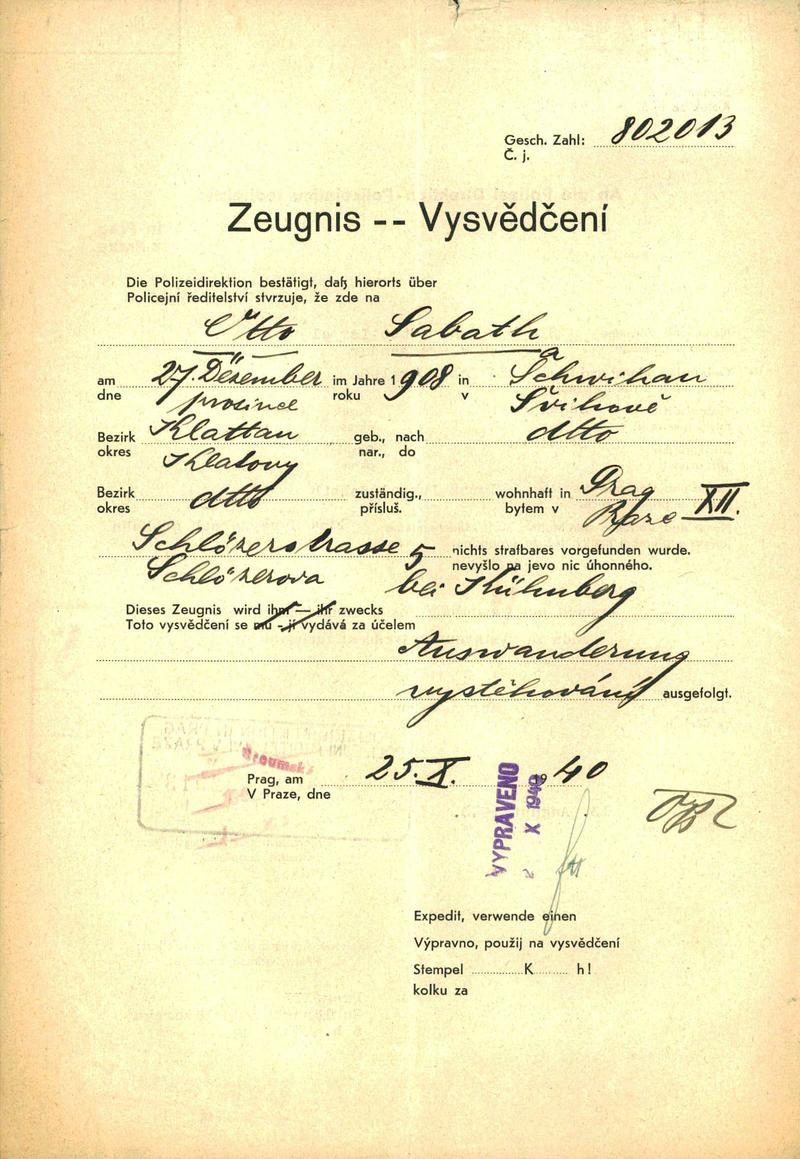 Gesch. Zahl: 802013
Č. j.
Zeugnis -- Vysvědčení
Die Polizeidirektion bestätigt, daß hierorts über
Policejní ředitelství stvrzuje, že zde na
Otto Sabath
am 27. Dezember im Jahre 1908 in Schwihau
dne prosince roku v Švihově
Bezirk Klattau geb., nach dtto
okres Klatovy nar., do
Bezirk dtto zuständig., wohnhaft in Prag XII.
okres přísluš. bytem v Praze
Schlözerstrasse 5 nichts strafbares vorgefunden wurde.
Schlözerova nevyšlo na jevo nic úhonného.
bei Kühnberg
Dieses Zeugnis wird ihm — ihr zwecks
Toto vysvědčení se mu - jí vydává za účelem
Auswanderung
vystěhování ausgefolgt.
Prag, am 25. X. 1940
V Praze, dne
VYPRAVENO
X 1940
Expedit, verwende einen
Výpravno, použij na vysvědčení
Stempel K h!
kolku za